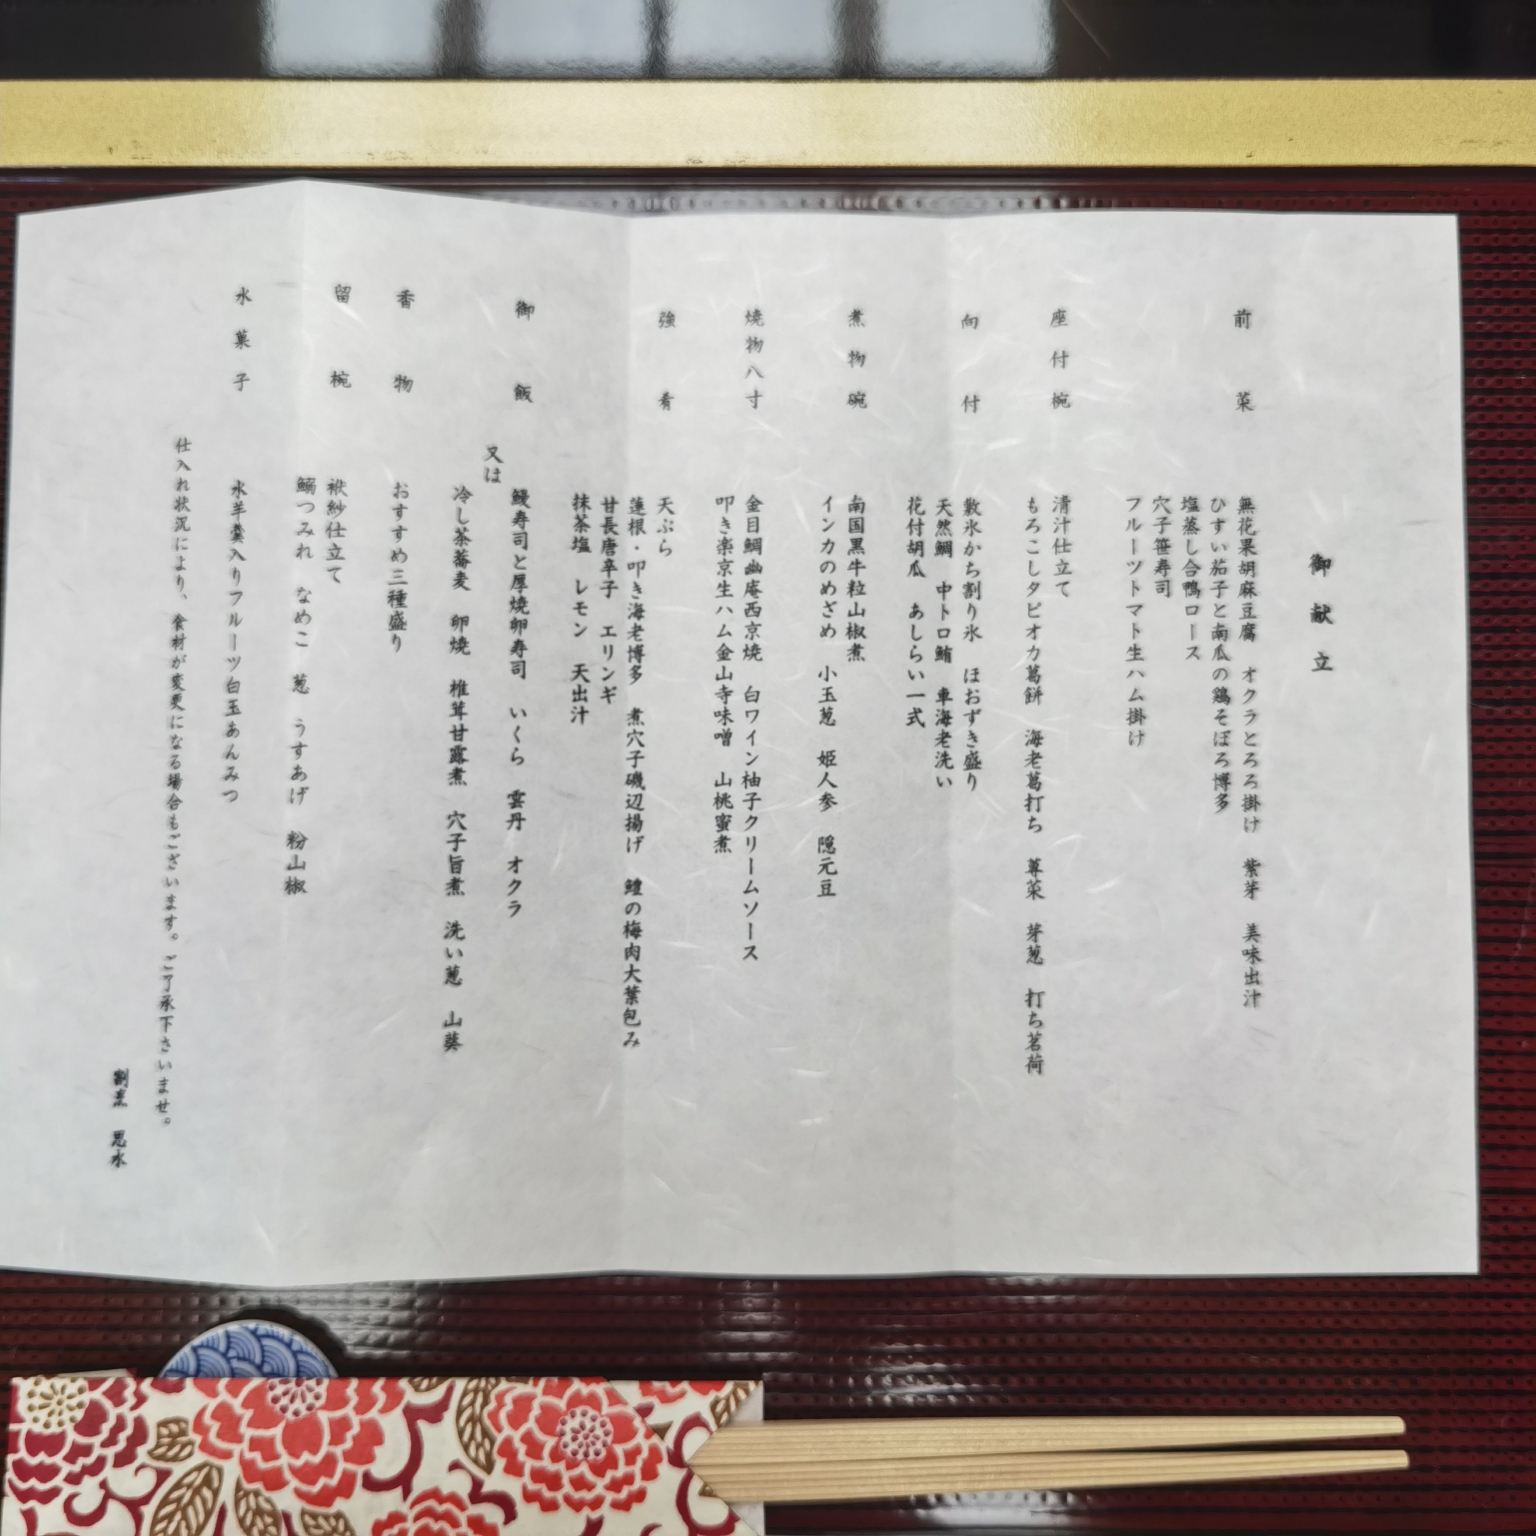 御献立
前菜
無花果胡麻豆腐　オクラとろろ掛け　紫芽　美味出汁
ひすい茄子と南瓜の鶏そぼろ博多
塩蒸し合鴨ロース
穴子笹寿司
フルーツトマト生ハム掛け
座付椀
清汁仕立て
もろこしタピオカ葛餅　海老葛打ち　蓴菜　芽葱　打ち茗荷
向付
敷氷かち割り氷　ほおずき盛り
天然鯛　中トロ鮪　車海老洗い
花付胡瓜　あしらい一式
煮物碗
南国黒牛粒山椒煮
インカのめざめ　小玉葱　姫人参　隠元豆
焼物八寸
金目鯛幽庵西京焼　白ワイン柚子クリームソース
叩き楽京生ハム金山寺味噌　山桃蜜煮
強肴
天ぷら
蓮根・叩き海老博多　煮穴子磯辺揚げ　鱧の梅肉大葉包み
甘長唐辛子　エリンギ
抹茶塩　レモン　天出汁
御飯
鰻寿司と厚焼卵寿司　いくら　雲丹　オクラ
又は
冷し茶蕎麦　卵焼　椎茸甘露煮　穴子旨煮　洗い葱　山葵
香物
おすすめ三種盛り
留椀
袱紗仕立て
鰯つみれ　なめこ　葱　うすあげ　粉山椒
水菓子
水羊羹入りフルーツ白玉あんみつ
仕入れ状況により、食材が変更になる場合もございます。ご了承下さいませ。
割烹　思水